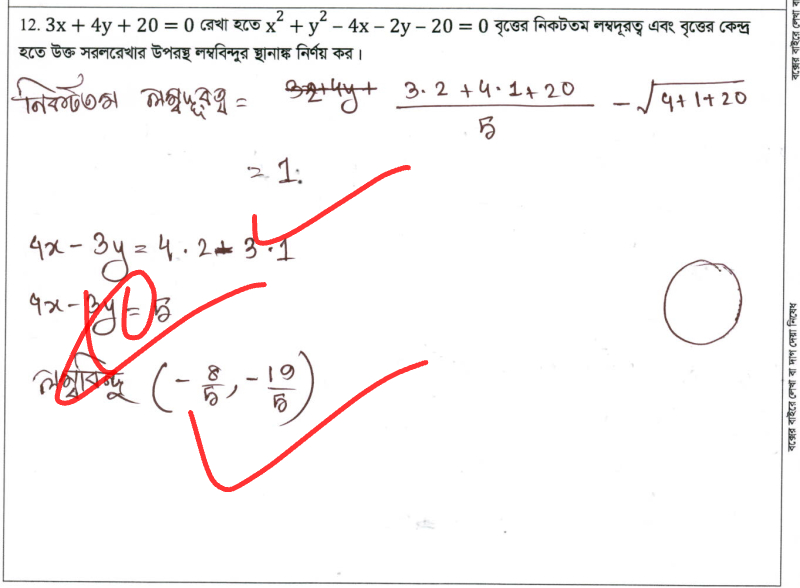 12. 3x + 4y + 20 = 0 রেখা হতে x² + y² − 4x − 2y − 20 = 0 বৃত্তের নিকটতম লম্বদূরত্ব এবং বৃত্তের কেন্দ্র
হতে উক্ত সরলরেখার উপরস্থ লম্ববিন্দুর স্থানাঙ্ক নির্ণয় কর।
নিকটতম লম্বদূরত্ব = (3·2 + 4·1 + 20)/5 − √(4+1+20)
= 1.
4x − 3y = 4·2 − 3·1
4x − 3y = 5
লম্ববিন্দু (−8/5, −19/5)
বক্সের বাইরে লেখা বা দাগ দেয়া নিষেধ